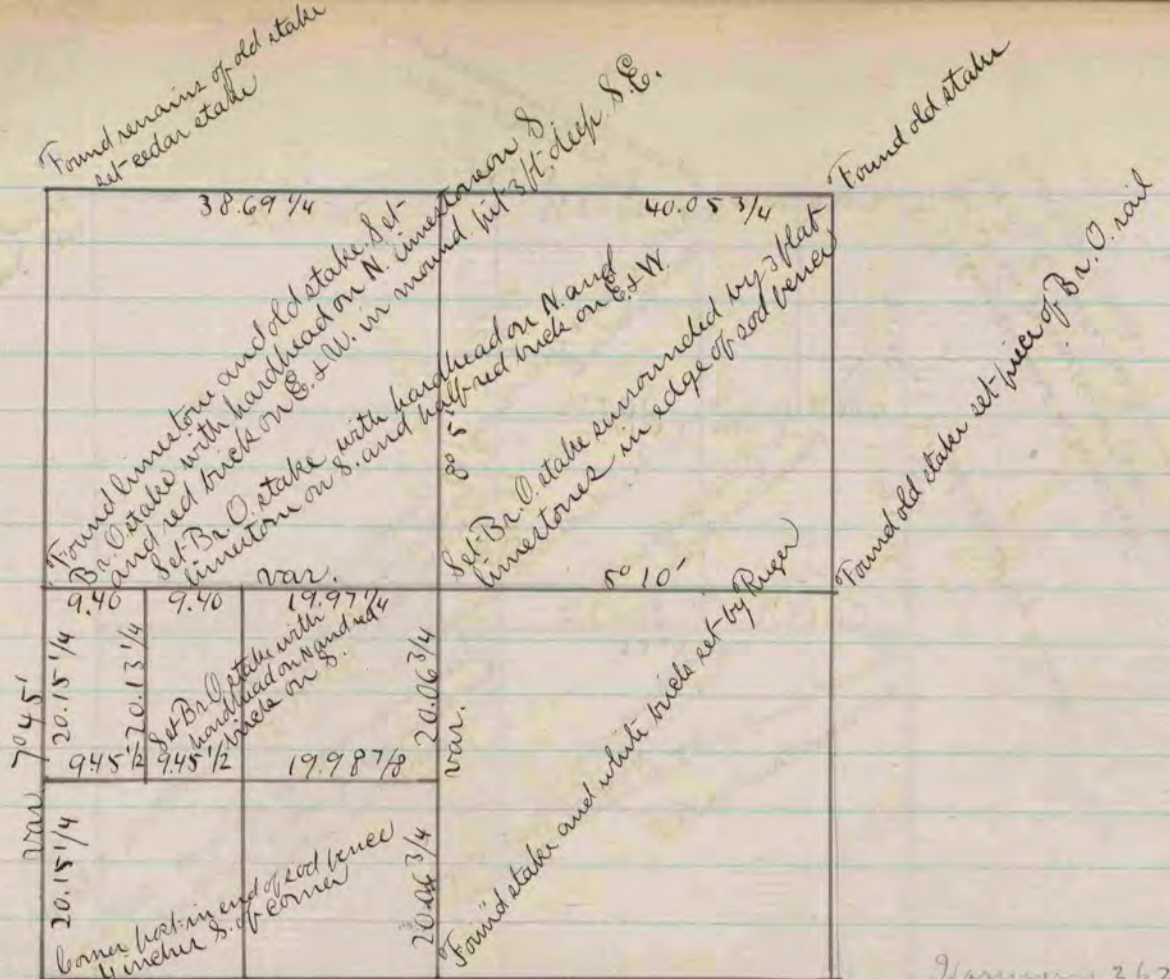 Found remains of old stake
set cedar stake
38.69 1/4
40.05 3/4
Found old stake
Found limestone and old stake. Set
Br. O. stake with hardhead on N. limestone on S.
and red brick on E. & W. in mound pit 3 ft. deep S.E.
Set Br. O. stake with hardhead on N. and
limestone on S. and half red brick on E. & W.
8° 5'
Set Br. O. stake surrounded by 3 flat
limestones in edge of sod fence
Found old stake set piece of Br. O. rail
var.
5° 10'
9.40
9.40
19.97 1/4
7° 45'
var
20.15 1/4
20.13 1/4
Set Br. O. stake with
hardhead on N and red
brick on S.
20.06 3/4
var.
9.45 1/2
9.45 1/2
19.98 7/8
Found stake and white brick set by Ruger
20.15 1/4
Corner post in end of sod fence
4 inches S. of corner
20.06 3/4